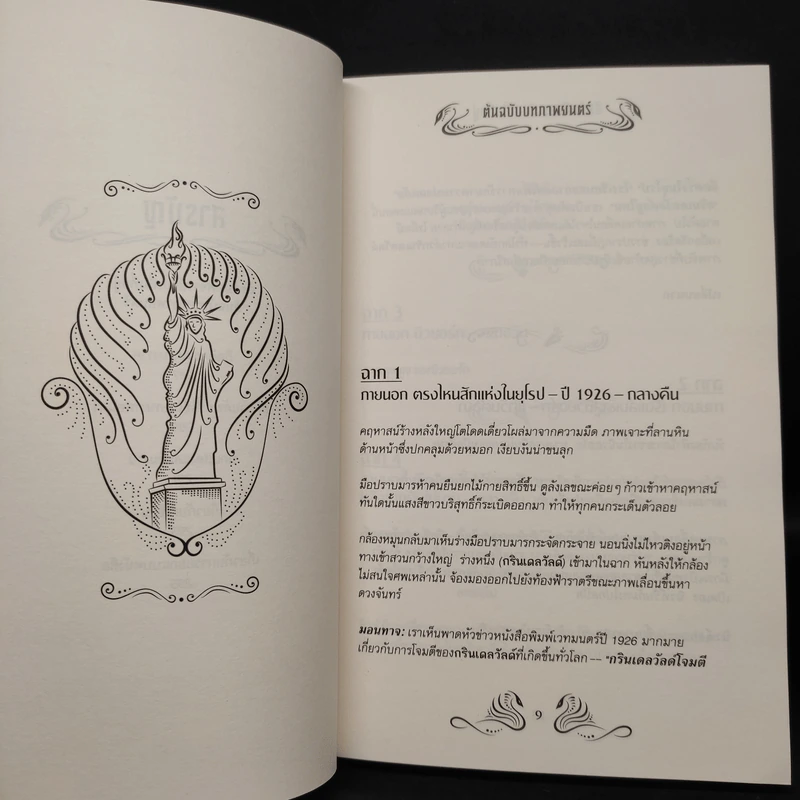 ต้นฉบับบทภาพยนตร์
ฉาก 1
ภายนอก ตรงไหนสักแห่งในยุโรป – ปี 1926 – กลางคืน
คฤหาสน์ร้างหลังใหญ่โตโดดเดี่ยวโผล่มาจากความมืด ภาพเจาะที่ลานหิน
ด้านหน้าซึ่งปกคลุมด้วยหมอก เงียบงันน่าขนลุก
มือปราบมารห้าคนยืนยกไม้กายสิทธิ์ขึ้น ดูลังเลขณะค่อยๆ ก้าวเข้าหาคฤหาสน์
ทันใดนั้นแสงสีขาวบริสุทธิ์ก็ระเบิดออกมา ทำให้ทุกคนกระเด็นตัวลอย
กล้องหมุนกลับมาเห็นร่างมือปราบมารกระจัดกระจาย นอนนิ่งไม่ไหวติงอยู่หน้า
ทางเข้าสวนกว้างใหญ่ ร่างหนึ่ง (กรินเดลวัลด์) เข้ามาในฉาก หันหลังให้กล้อง
ไม่สนใจศพเหล่านั้น จ้องมองออกไปยังท้องฟ้าราตรีขณะภาพเลื่อนขึ้นหา
ดวงจันทร์
มอนทาจ: เราเห็นพาดหัวข่าวหนังสือพิมพ์เวทมนตร์ปี 1926 มากมาย
เกี่ยวกับการโจมตีของกรินเดลวัลด์ที่เกิดขึ้นทั่วโลก -- "กรินเดลวัลด์โจมตี
9